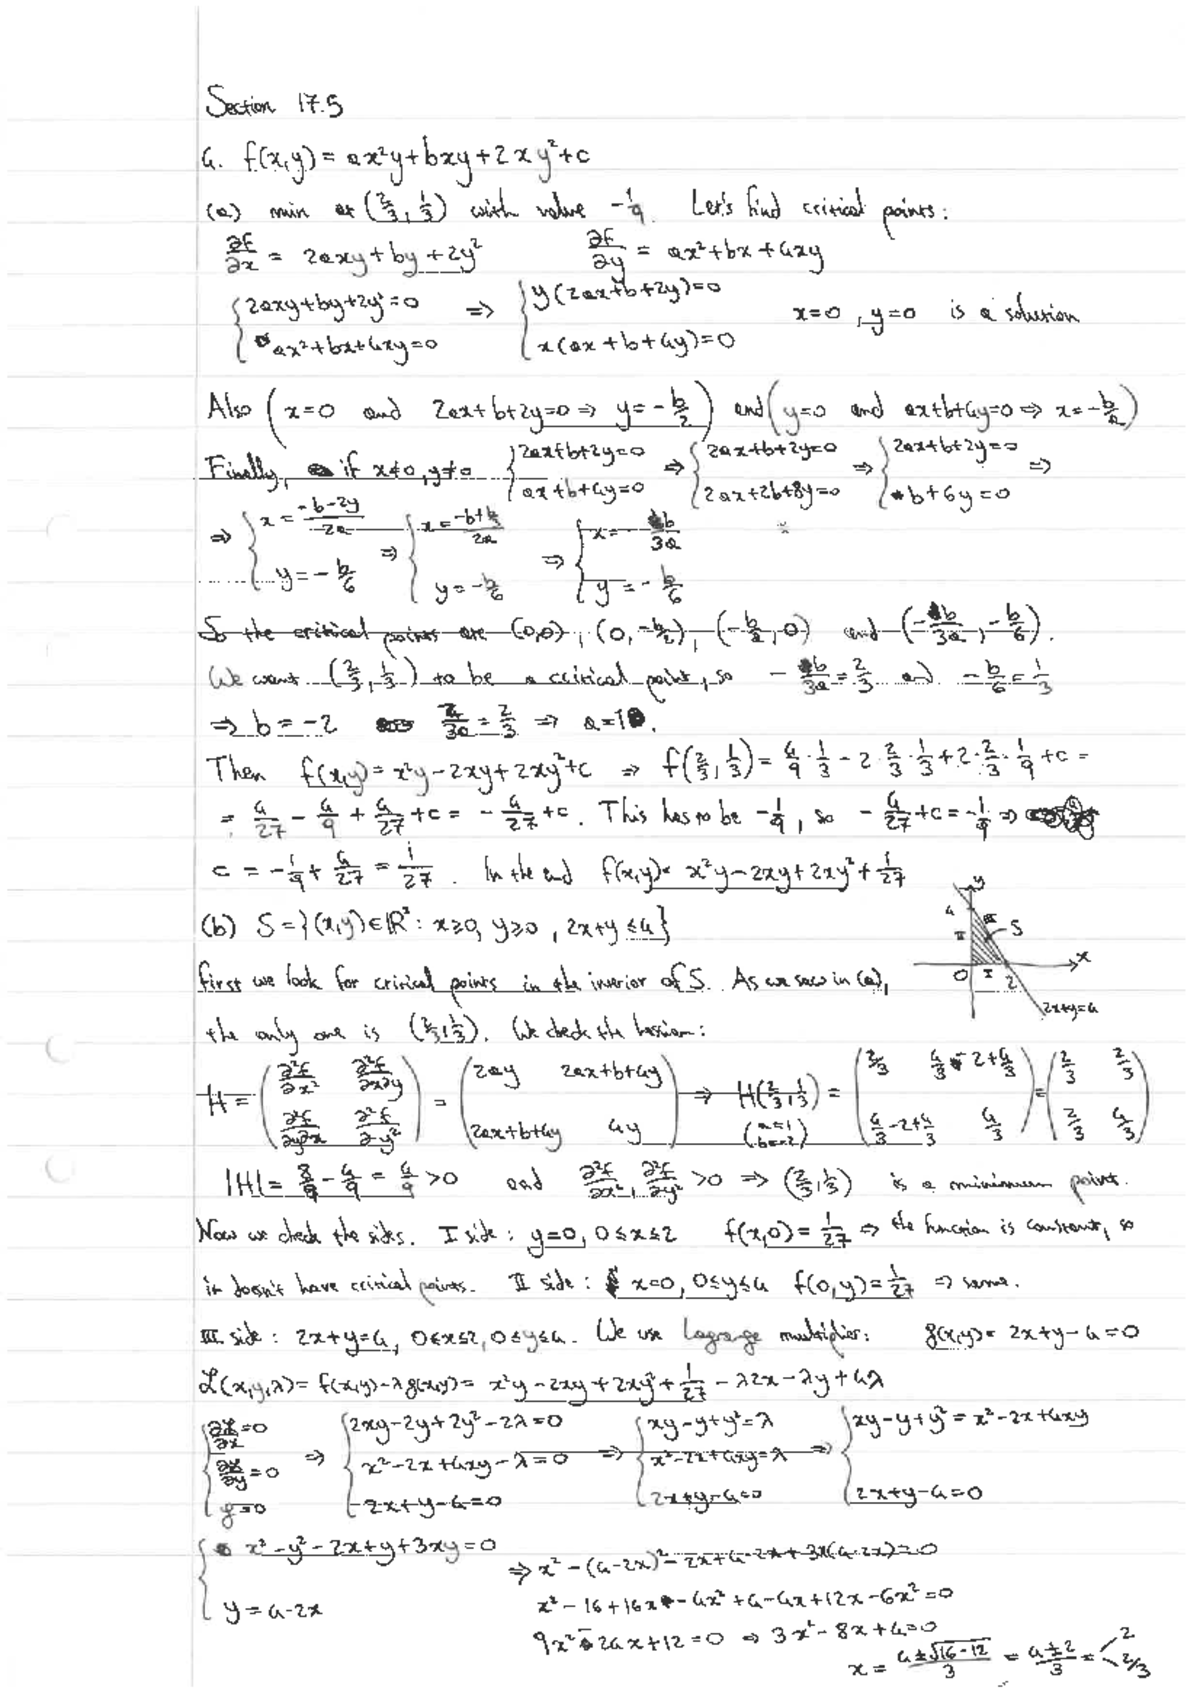 Section 17.5
4. f(x,y) = ax²y + bxy + 2xy² + c
(a) min at (2/3, 1/3) with value -1/9. Let's find critical points:
∂f/∂x = 2axy + by + 2y² ∂f/∂y = ax² + bx + 4xy
{ 2axy + by + 2y² = 0 ⇒ { y(2ax + b + 2y) = 0 x=0, y=0 is a solution
ax² + bx + 4xy = 0 x(ax + b + 4y) = 0
Also (x=0 and 2ax + b + 2y = 0 ⇒ y = -b/2) and (y=0 and ax + b + 4y = 0 ⇒ x = -b/a)
Finally, if x≠0, y≠0 { 2ax + b + 2y = 0 ⇒ { 2ax + b + 2y = 0 ⇒ { 2ax + b + 2y = 0 ⇒
ax + b + 4y = 0 2ax + 2b + 8y = 0 b + 6y = 0
⇒ { x = -b-2y/2a ⇒ { x = -b+b/3/2a ⇒ { x = -b/3a
y = -b/6 y = -b/6 y = -b/6
So the critical points are (0,0), (0, -b/2), (-b/a, 0) and (-b/3a, -b/6).
We want (2/3, 1/3) to be a critical point, so -b/3a = 2/3 and -b/6 = 1/3
⇒ b = -2 2/3a = 2/3 ⇒ a = 1.
Then f(x,y) = x²y - 2xy + 2xy² + c ⇒ f(2/3, 1/3) = 4/9 · 1/3 - 2 · 2/3 · 1/3 + 2 · 2/3 · 1/9 + c =
= 4/27 - 4/9 + 4/27 + c = -4/27 + c. This has to be -1/9, so -4/27 + c = -1/9 ⇒
c = -1/9 + 4/27 = 1/27. In the end f(x,y) = x²y - 2xy + 2xy² + 1/27
(b) S = {(x,y) ∈ ℝ² : x≥0, y≥0, 2x+y ≤ 4}
y
4
III
II
S
x
0
I
2
2x+y=4
first we look for critical points in the interior of S. As we saw in (a),
the only one is (2/3, 1/3). We check the hessian:
H = ( ∂²f/∂x² ∂²f/∂x∂y ) = ( 2ay 2ax+b+4y ) ⇒ H(2/3, 1/3) = ( 2/3 4/3 - 2 + 4/3 ) = ( 2/3 2/3 )
( ∂²f/∂y∂x ∂²f/∂y² ) ( 2ax+b+4y 4y ) (a=1 b=-2) ( 4/3 - 2 + 4/3 4/3 ) ( 2/3 4/3 )
|H| = 8/9 - 4/9 = 4/9 > 0 and ∂²f/∂x², ∂²f/∂y² > 0 ⇒ (2/3, 1/3) is a minimum point.
Now we check the sides. I side: y=0, 0≤x≤2 f(x,0) = 1/27 ⇒ the function is constant, so
it doesn't have critical points. II side: x=0, 0≤y≤4 f(0,y) = 1/27 ⇒ same.
III side: 2x+y=4, 0≤x≤2, 0≤y≤4. We use Lagrange multiplier: g(x,y) = 2x+y-4=0
ℒ(x,y,λ) = f(x,y) - λg(x,y) = x²y - 2xy + 2xy² + 1/27 - λ2x - λy + 4λ
{ ∂ℒ/∂x = 0 ⇒ { 2xy - 2y + 2y² - 2λ = 0 ⇒ { xy - y + y² = λ ⇒ { xy - y + y² = x² - 2x + 4xy
∂ℒ/∂y = 0 x² - 2x + 4xy - λ = 0 x² - 2x + 4xy = λ
g = 0 2x + y - 4 = 0 2x + y - 4 = 0 2x + y - 4 = 0
{ x² - y² - 2x + y + 3xy = 0 ⇒ x² - (4-2x)² - 2x + 4 - 2x + 3x(4-2x) = 0
y = 4 - 2x x² - 16 + 16x - 4x² + 4 - 4x + 12x - 6x² = 0
9x² - 24x + 12 = 0 ⇒ 3x² - 8x + 4 = 0
x = 4±√16-12/3 = 4±2/3 = < 2
2/3